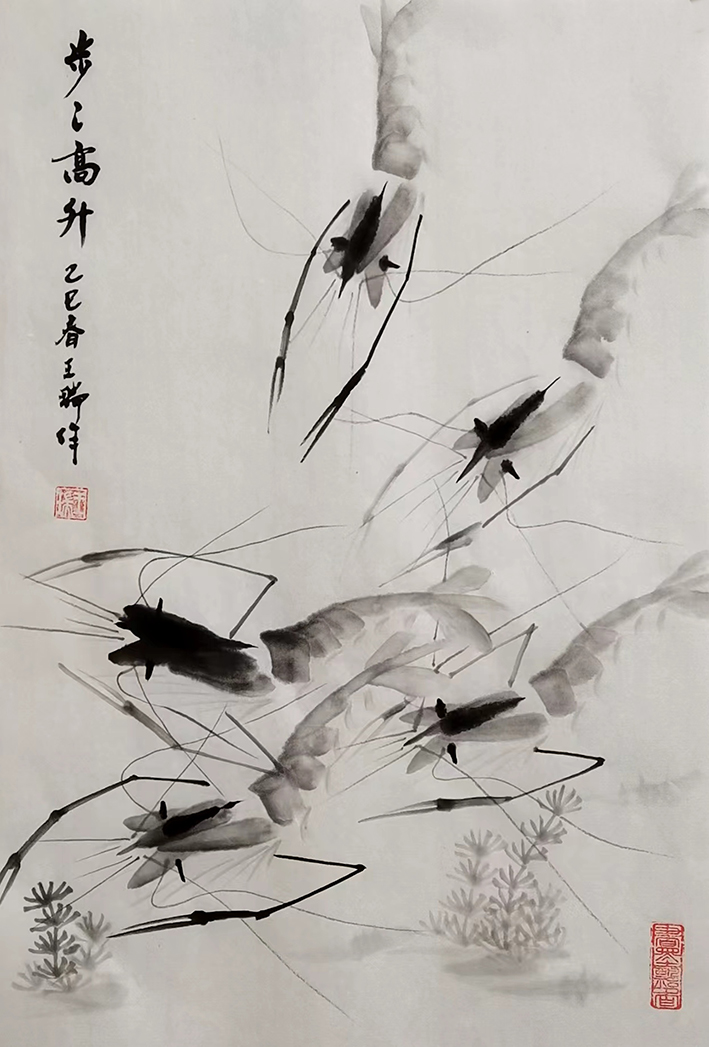 步〻高升 乙巳春 王瑞作